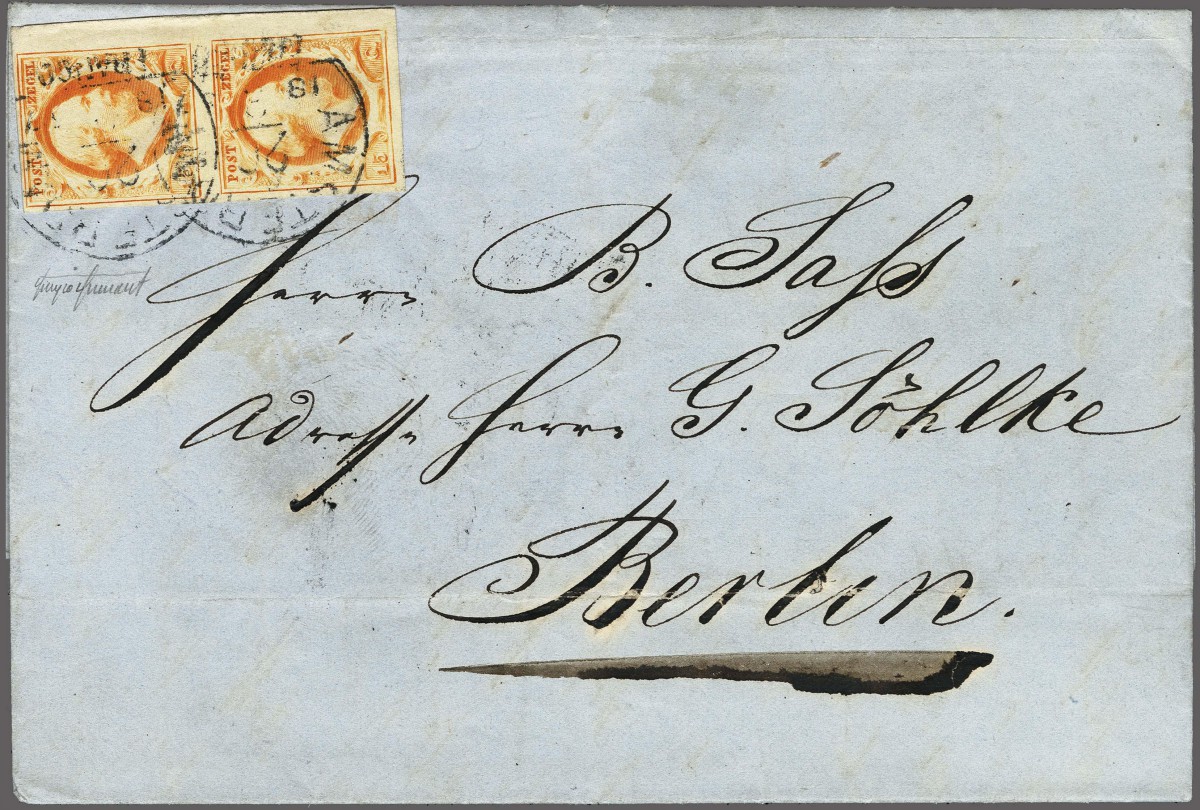 POST ZEGEL
POST ZEGEL
15 C
FRANCO
AMSTERDAM
Herrn B. Sass
Adresse Herrn G. Söhlke
Berlin.